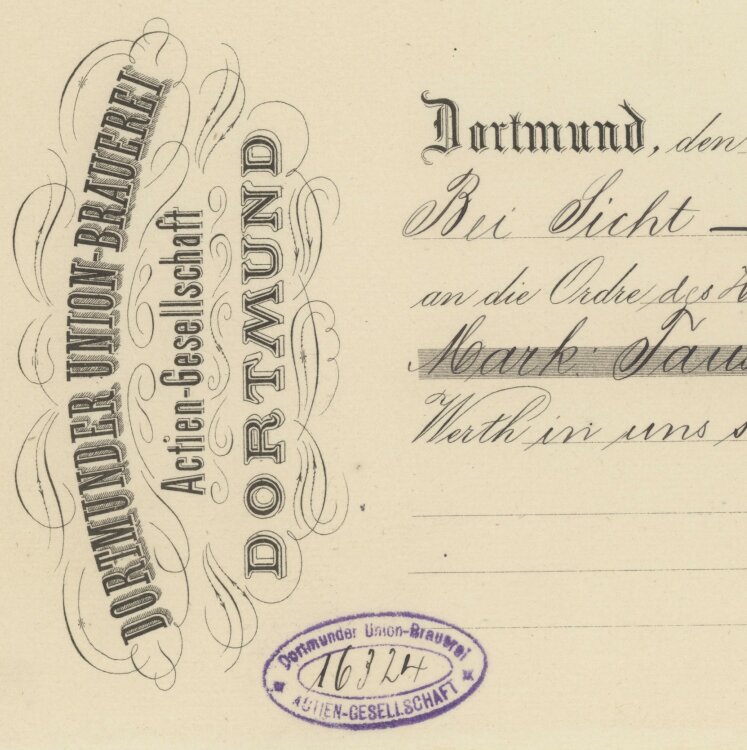 DORTMUNDER UNION-BRAUEREI
Actien-Gesellschaft
DORTMUND
Dortmund, den
Bei Sicht —
an die Ordre des
Mark:
Werth in uns
Dortmunder Union-Brauerei
16324
ACTIEN-GESELLSCHAFT